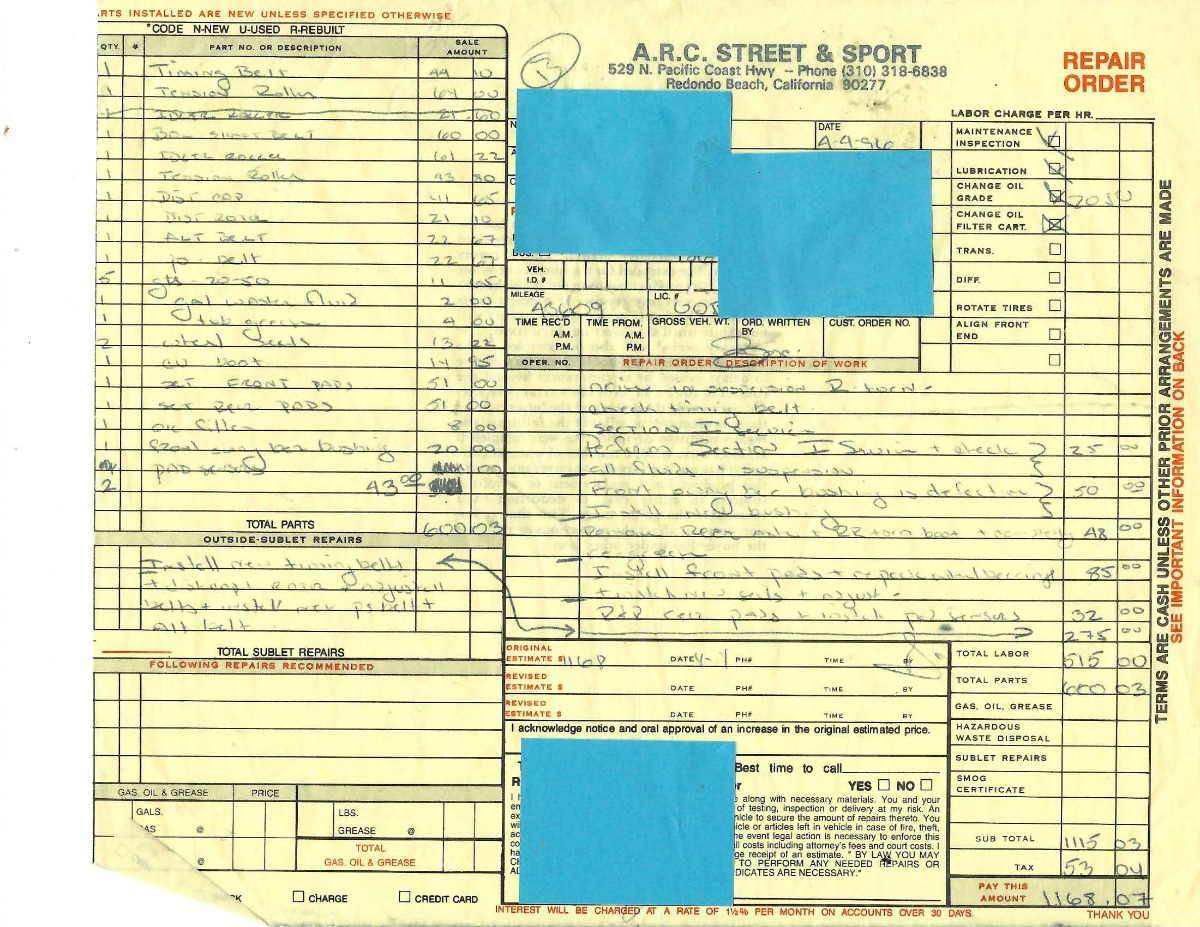 ARTS INSTALLED ARE NEW UNLESS SPECIFIED OTHERWISE
*CODE N-NEW U-USED R-REBUILT
QTY. # PART NO. OR DESCRIPTION SALE AMOUNT
1 Timing Belt 44 10
1 Tension Roller 64 00
1 IDLER ROLLER 21 60
1 BAL SHAFT BELT 60 00
1 IDLER ROLLER 61 22
1 Tension Roller 43 80
1 DIST CAP 41 65
1 DIST ROTOR 21 10
1 ALT BELT 22 67
1 ps belt 22 67
5 qts 20-50 11 65
1 gal washer fluid 2 00
1 tub grease 4 00
2 wheel seals 13 22
1 CV boot 14 95
1 SET FRONT PADS 51 00
1 SET REAR PADS 51 00
1 OIL filter 8 00
1 front sway bar bushing 20 00
pad sensors 00
2 43 00
TOTAL PARTS 600 03
OUTSIDE-SUBLET REPAIRS
Install new timing belts
+ dist cap rotor + adjust all
belts + install new ps belt +
Alt belt.
TOTAL SUBLET REPAIRS
FOLLOWING REPAIRS RECOMMENDED
GAS, OIL & GREASE PRICE
GALS. LBS.
GAS @ GREASE @
@ TOTAL GAS, OIL & GREASE
CHARGE CREDIT CARD
13
A.R.C. STREET & SPORT
529 N. Pacific Coast Hwy – Phone (310) 318-6838
Redondo Beach, California 90277
REPAIR ORDER
LABOR CHARGE PER HR.
DATE
4-4-96
BUS.
VEH. I.D. #
MILEAGE LIC. #
43609
TIME REC'D A.M. P.M. TIME PROM. A.M. P.M. GROSS VEH. WT. ORD. WRITTEN BY CUST. ORDER NO.
MAINTENANCE INSPECTION
LUBRICATION
CHANGE OIL GRADE 2050
CHANGE OIL FILTER CART.
TRANS.
DIFF.
ROTATE TIRES
ALIGN FRONT END
OPER. NO. REPAIR ORDER - DESCRIPTION OF WORK
noise in suspension R-turn-
check timing belt
SECTION I Service
Perform Section I Service + check 25 00
all fluids + suspension
Front sway bar bushing is defective 50 00
Install new bushing
48 00
Install front pads + repack wheel bearings 85 00
+ install new seals + adjust -
R&R rear pads + install pad sensors 32 00
275 00
ORIGINAL ESTIMATE $ 1168 DATE 4- PH# TIME BY
REVISED ESTIMATE $ DATE PH# TIME BY
REVISED ESTIMATE $ DATE PH# TIME BY
I acknowledge notice and oral approval of an increase in the original estimated price.
Best time to call
YES NO
along with necessary materials. You and your
of testing, inspection or delivery at my risk. An
hicle to secure the amount of repairs thereto. You
icle or articles left in vehicle in case of fire, theft,
the event legal action is necessary to enforce this
ll costs including attorney's fees and court costs. I
ge receipt of an estimate. " BY LAW YOU MAY
TO PERFORM ANY NEEDED REPAIRS OR
DICATES ARE NECESSARY."
TOTAL LABOR 515 00
TOTAL PARTS 600 03
GAS, OIL, GREASE
HAZARDOUS WASTE DISPOSAL
SUBLET REPAIRS
SMOG CERTIFICATE
SUB TOTAL 1115 03
TAX 53 04
PAY THIS AMOUNT 1168.07
INTEREST WILL BE CHARGED AT A RATE OF 1½% PER MONTH ON ACCOUNTS OVER 30 DAYS.
THANK YOU
TERMS ARE CASH UNLESS OTHER PRIOR ARRANGEMENTS ARE MADE
SEE IMPORTANT INFORMATION ON BACK